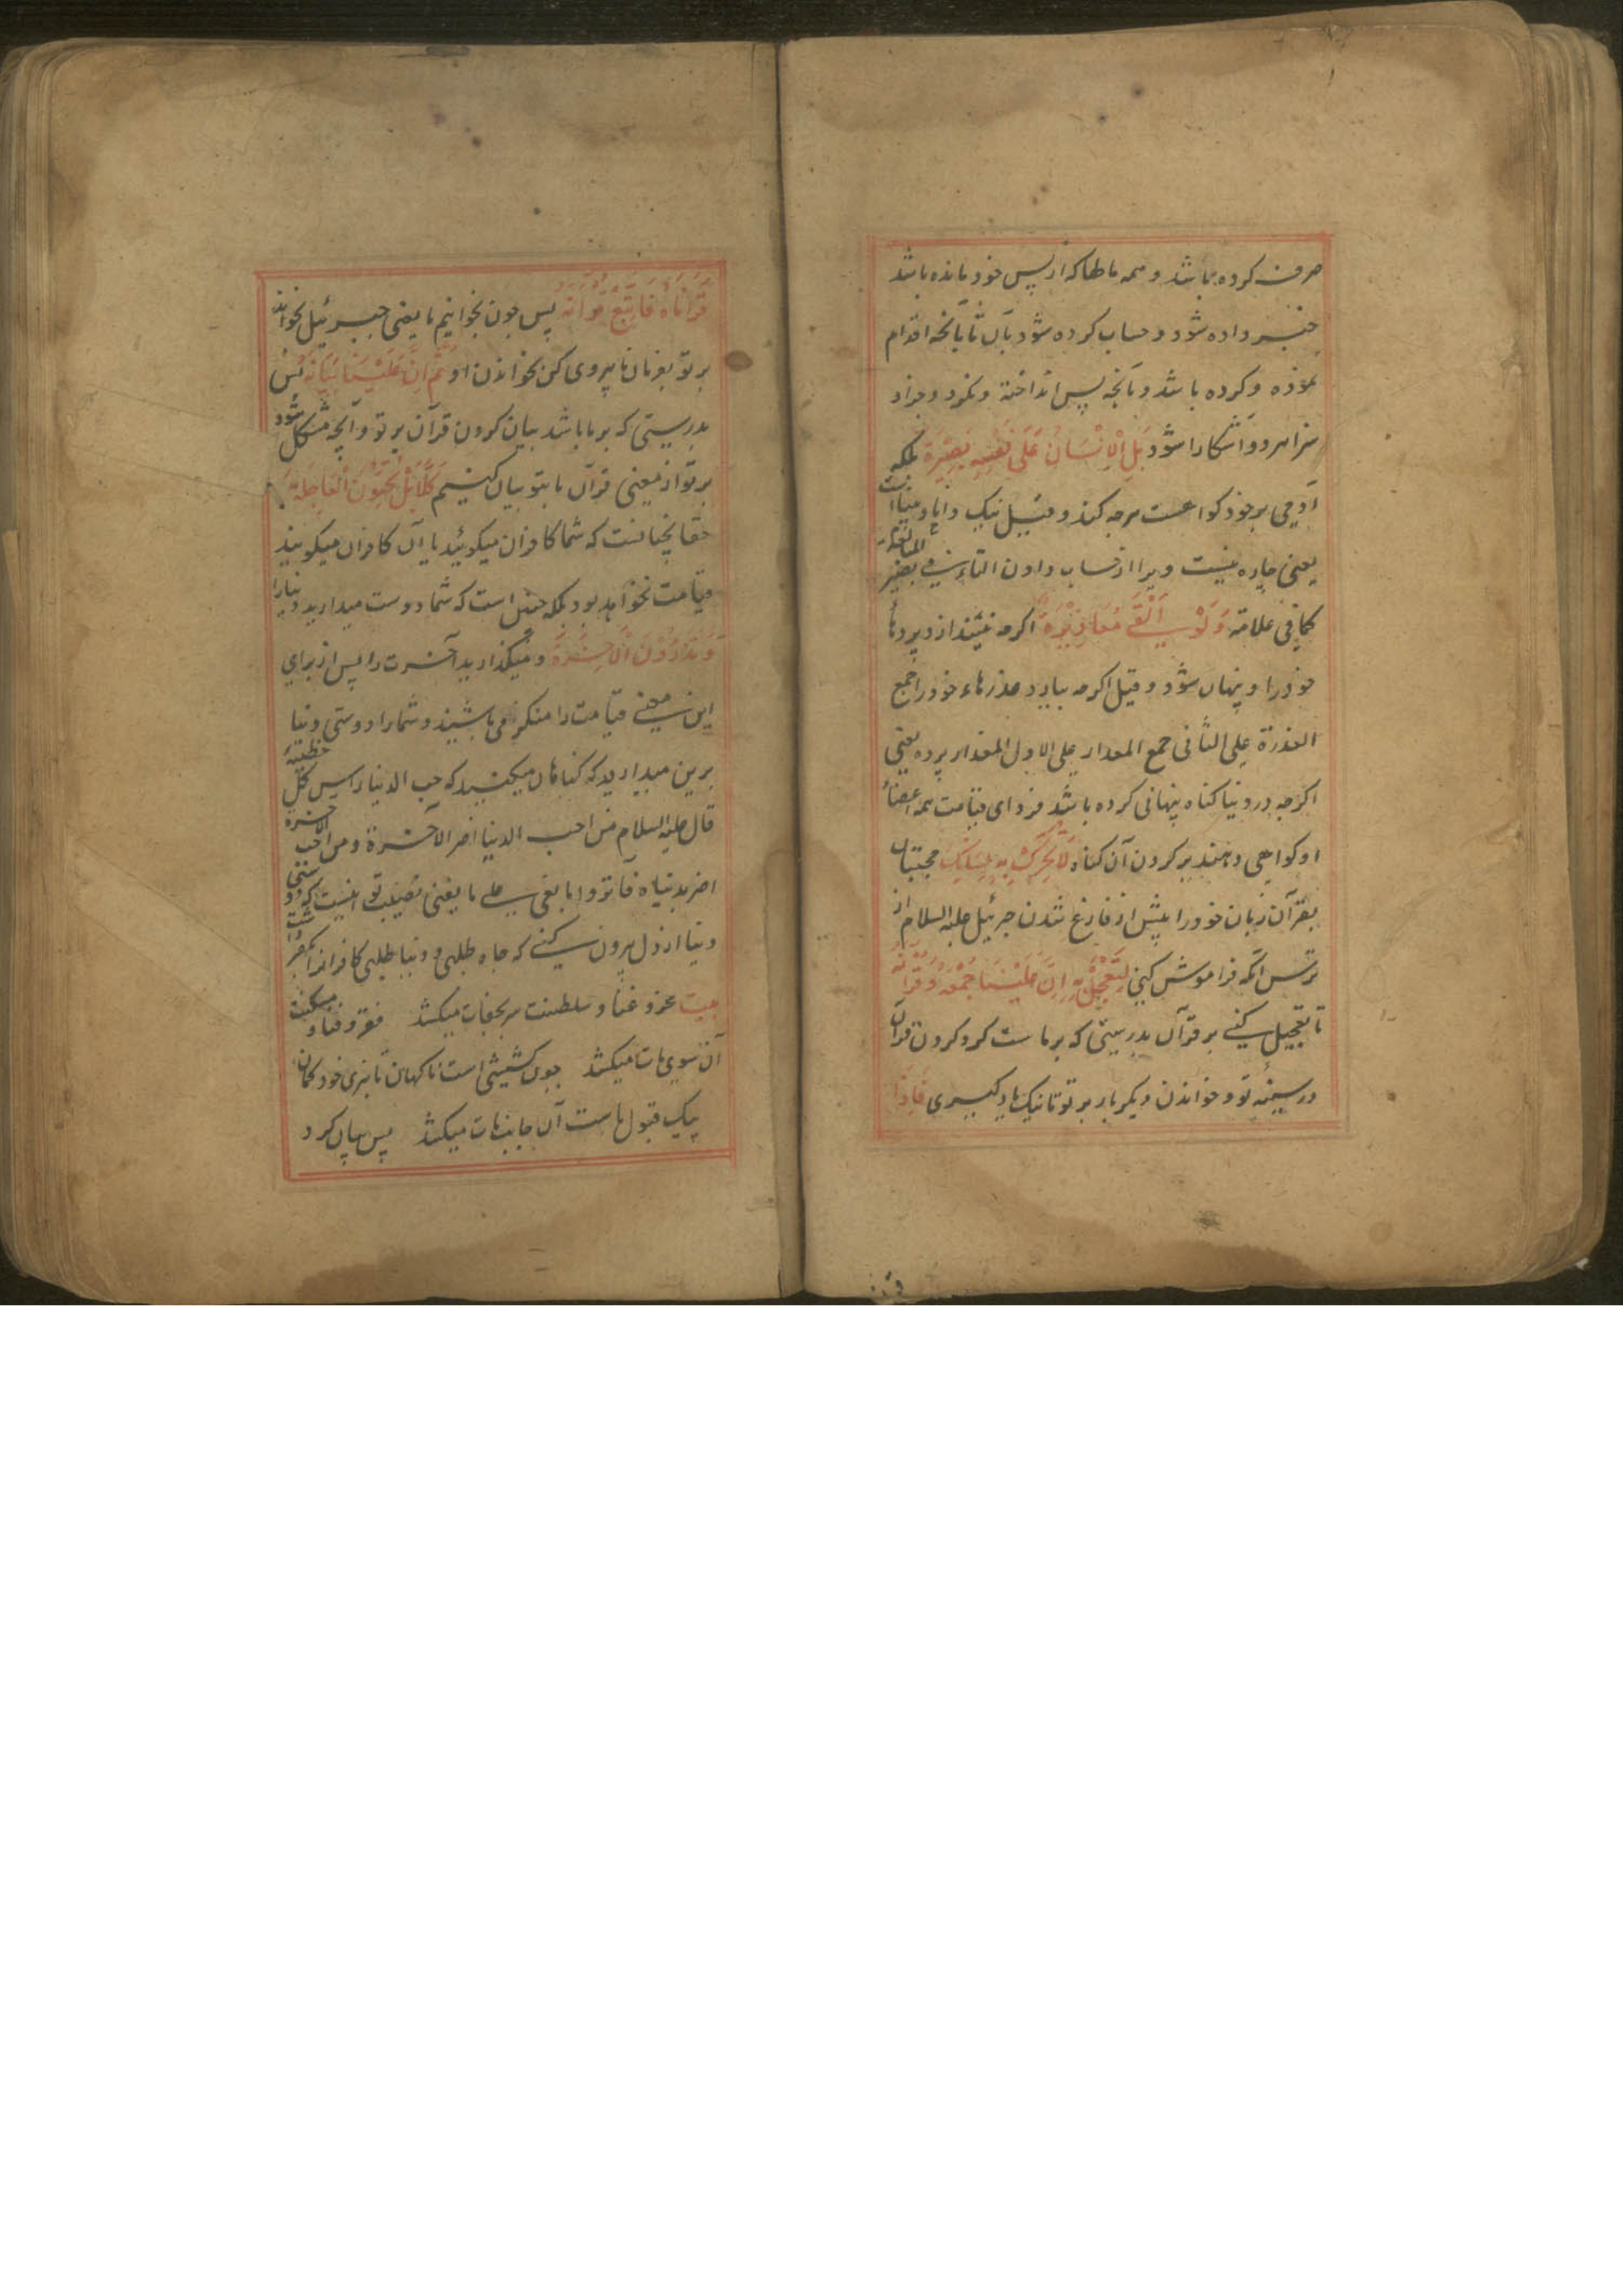 صرف کرده باشد و همه مالها که از پس خود مانده باشد
خبر داده شود و حساب کرده شود بآن تا بآنچه اقدام
نموده و کرده باشد و بآنچه پس انداخته و نکرد و جزاء
سزا هر دو آشکارا شود بَلِ الْاِنْسَانُ عَلَى نَفْسِهٖ بَصِيْرَةٌ بلکه
آدمی بر خود کواهست هرچه کند و قیل نیک دانا و بینا است
یعنی چاره نیست ویرا از حساب دادن التاء فی بصیر للمبالغة
کما فی علامة وَلَوْ اَلْقٰى مَعَاذِيْرَهٗ اکرچه نشیند از دیردها
خود را و پنهان شود و قیل اکرچه بیارد عذرهاء خود را جمع
العذرة علی الثانی جمع المعدار علی الاول المعدار پرده یعنی
اکرچه در دنیا کناه پنهانی کرده باشد فردای قیامت همه اعضاء
او کواهی دهند بر کردن آن کناه لَا تُحَرِّكْ بِهٖ لِسَانَكَ مجنبان
بقرآن زبان خود را پیش از فارغ شدن جبرئیل علیه السلام از
ترس آنکه فراموش کنی لِتَعْجَلَ بِهٖ اِنَّ عَلَيْنَا جَمْعَهٗ وَقُرْاٰنَهٗ
تا تعجیل کنی بر قرآن بدرستی که بر ماست کرد کردن قرآن
در سینه تو و خواندن دیکر بار بر تو تا نیک یاد کیری فَاِذَا
قَرَاْنَاهُ فَاتَّبِعْ قُرْاٰنَهٗ پس چون بخوانیم ما یعنی جبرئیل بخواند
بر تو بفرمان ما پیروی کن بخواندن او ثُمَّ اِنَّ عَلَيْنَا بَيَانَهٗ پس
بدرستی که بر ما باشد بیان کردن قرآن بر تو و آنچه مشکل شود
بر تو از معنی قرآن ما بتو بیان کنیم كَلَّا بَلْ تُحِبُّوْنَ الْعَاجِلَةَ
حقا نچنانست که شما کافران میکوئید یا آن کافران میکویند
قیامت نخواهد بود بلکه چنین است که شما دوست میدارید دنیا را
وَتَذَرُوْنَ الْاٰخِرَةَ و میکذارید آخرت را پس از برای
این معنی قیامت را منکر می باشیند و شما را دوستی دنیا
برین میدارید که کناهان میکنید که حب الدنیا راس کل خطیئة
قال علیه السلام من احب الدنیا اضر الآخرة و من احب الآخرة
اضر بدنیاه فآثروا ما یبقی علی ما یفنی نصیب تو
دنیا از دل بیرون کنی که جاه طلبی و دنیا طلبی کافرانرا
بیت عز و غنا و سلطنت میکشد فقر و فنا و مسکنت
آن سوی هات میکشد چون کششی است ناکهان تا نبری خود کمان
پیک قبول ماست آن جانب هات میکشد پس بیان کرد